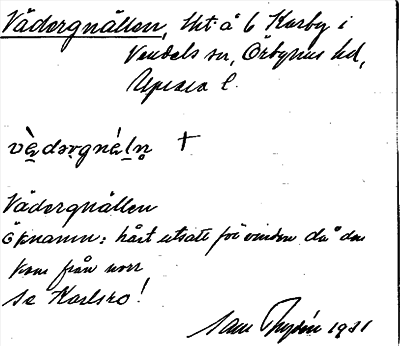 Vädergnällen, lht å 6 Karby i
Vendels sn, Örbyhus hd,
Upsala l.
vä̀dərgnä́ln +
Vädergnällen
öknamn: hårt utsatt för vinden då den
kom från norr
se Karlsro!
1931